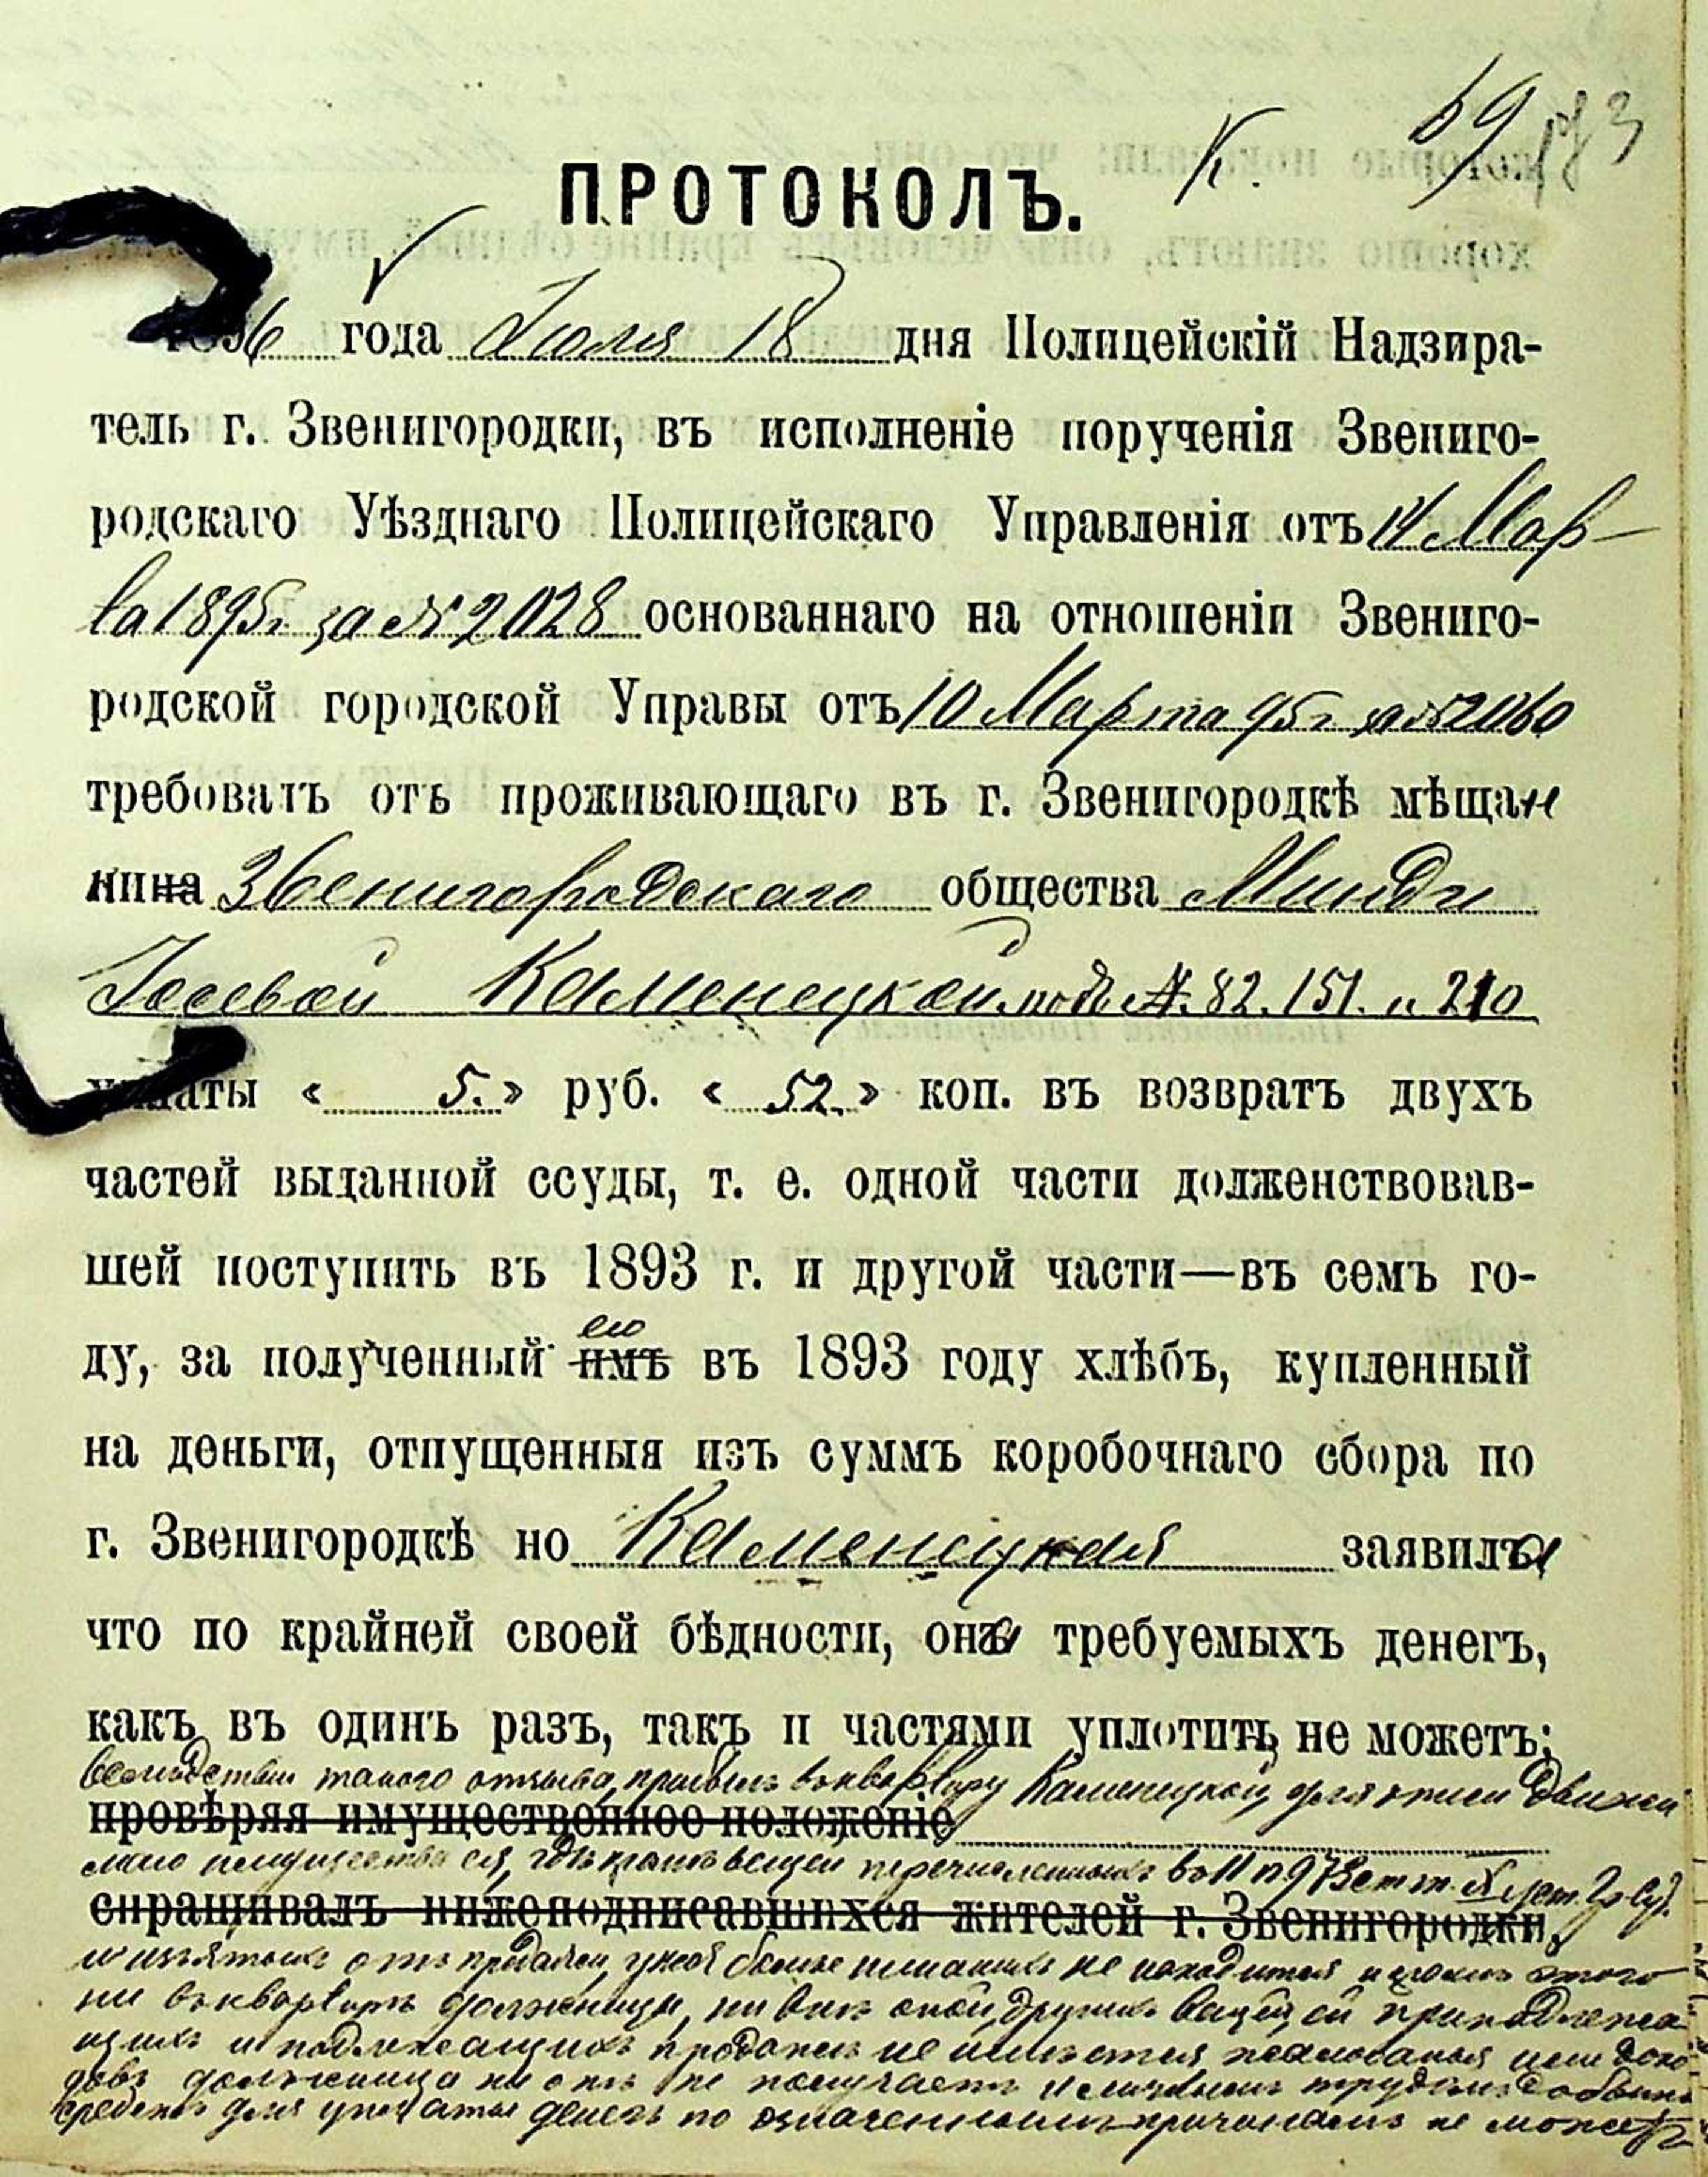 К. 69 173
ПРОТОКОЛЪ.
1896 года Іюля 18 дня Полицейскій Надзира-
тель г. Звенигородки, въ исполненіе порученія Звениго-
родскаго Уѣзднаго Полицейскаго Управленія отъ 14 Мар-
та 1895 г за № 2028 основаннаго на отношеніи Звениго-
родской городской Управы отъ 10 Марта 95 г за № 2060
требовалъ отъ проживающаго въ г. Звенигородкѣ мѣщан
нина Звенигородскаго общества Минди
Іосевой Каменецкой подъ № 82. 151. и 210
уплаты « 5. » руб. « 52. » коп. въ возвратъ двухъ
частей выданной ссуды, т. е. одной части долженствовав-
шей поступить въ 1893 г. и другой части—въ семъ го-
ею
ду, за полученный имъ въ 1893 году хлѣбъ, купленный
на деньги, отпущенныя изъ суммъ коробочнаго сбора по
г. Звенигородкѣ но Каменецкая заявила
что по крайней своей бѣдности, она требуемыхъ денегъ,
какъ въ одинъ разъ, такъ и частями уплотить не можетъ;
вслѣдствіи такого отзыва, прибылъ въ квартиру Каменецкой, для описи движи
провѣряя имущественное положеніе
маго имущества ея, гдѣ кромѣ вещей перечисленныхъ въ 973 ст т. X уст. Гр Суд.
спрашивалъ нижеподписавшихся жителей г. Звенигородки,
и изъятыхъ отъ продажи, у ней болѣе никакихъ не находится и кромѣ этого
ни въ квартирѣ должницы, ни внѣ оной, другихъ вещей, ей принадлежа
щихъ и подлежащихъ продажѣ не имѣется, жалованья или дохо
довъ должница ни отъ не получаетъ и личнымъ трудомъ добыть
средствъ для уплаты денегъ по означеннымъ причинамъ не можетъ